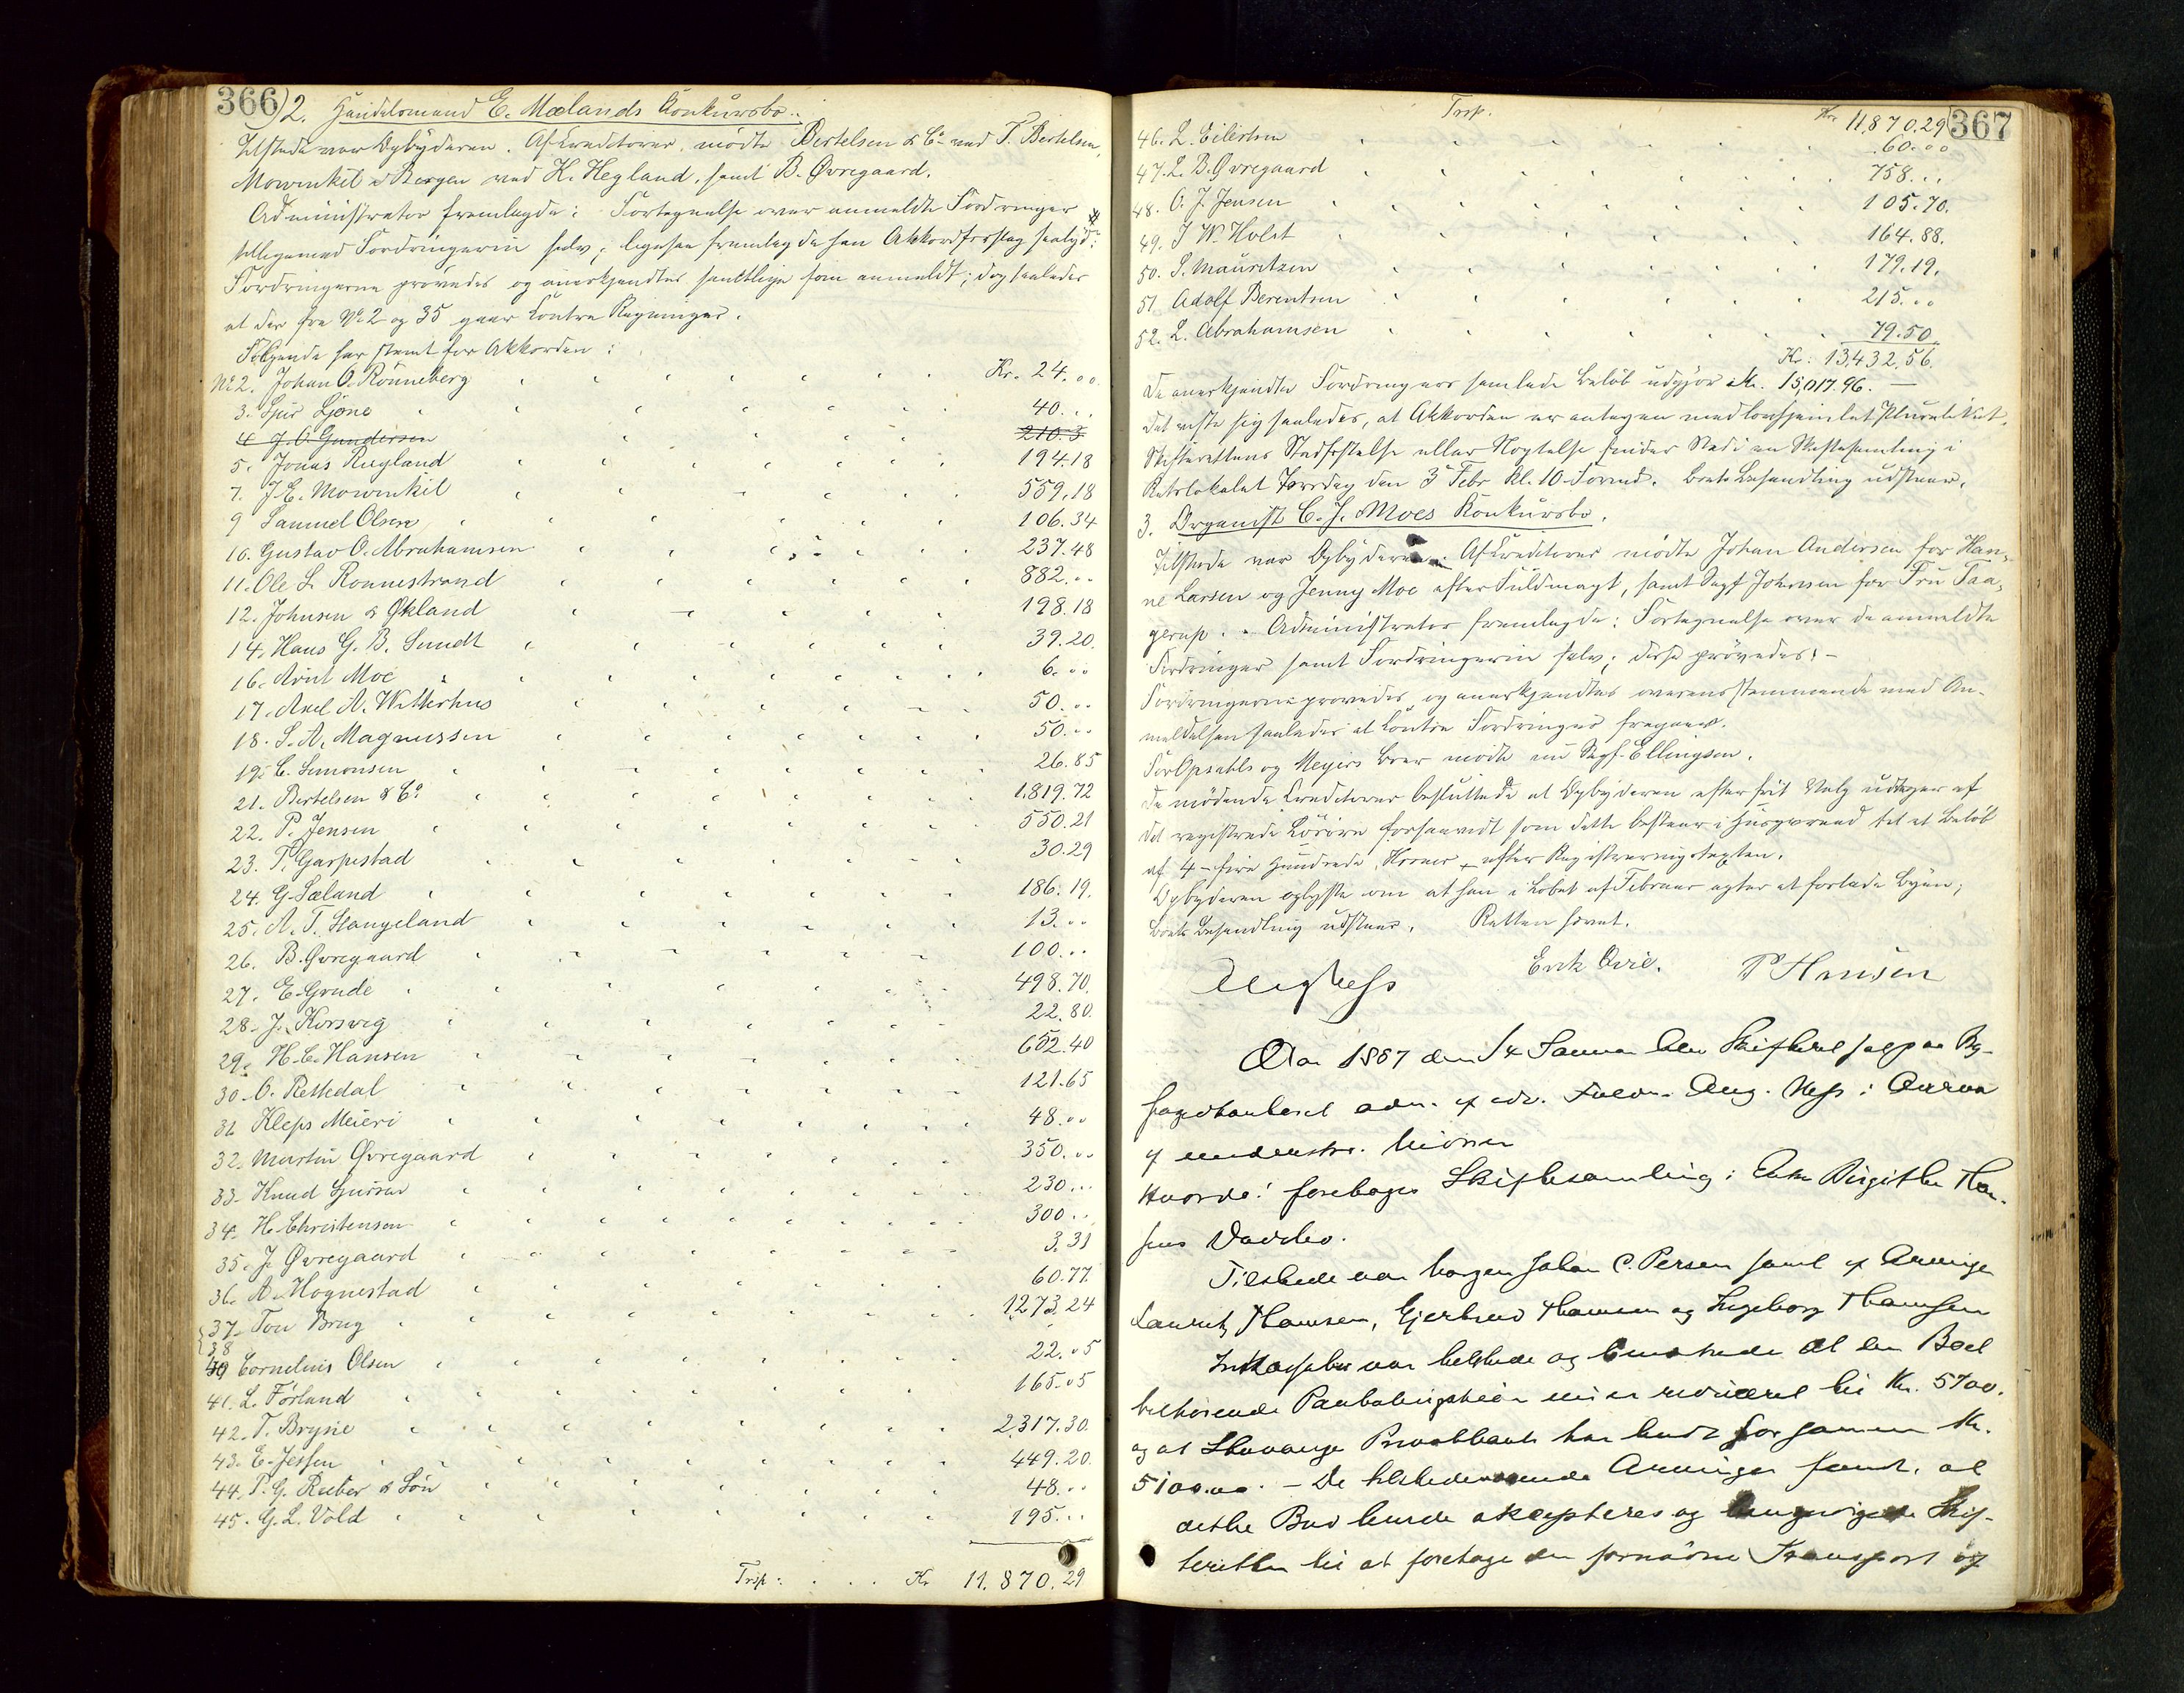 366
2. Handelsmand E. Mælands Konkursbo.
Tilstede var Opbyderen. Af Creditorer mødte Bertelsen & Co ved T. Bertelsen,
Mowinkel i Bergen ved K. Hegland, samt B. Øvregaard.
Administrator fremlagde: Fortegnelse over anmeldte Fordringer
tilligemed Fordringerne selv; ligesaa fremlagde han Akkordforslag
Fordringerne prøvedes og anerkjendtes samtlige som anmeldt; dog saaledes
at der fra No 2 og 35 gaar Contra Regninger.
Følgende har stemt for Akkorden:
No 2. Johan O. Rönneberg Kr. 24.00
3. Sjur Ljone 40...
4 J. O. Gundersen 210.3
5. Jonas Rugland 194.18
7. J. E. Mowinkel 559.18
9 Samuel Olsen 106.34
10. Gustav O. Abrahamsen 237.48
11. Ole L. Ronnestrand 882...
12. Johnsen & Økland 198.18
14. Hans G. B. Sundt 39.20.
16. Arnt Moe 6...
17. Axel A. Witterhus 50...
18. S. A. Magnussen 50...
19. C. Simonsen 26.85
21. Bertelsen & Co 1,819.72
22. P. Jensen 550.21
23. T. Garpestad 30.29
24. G. Sæland 186.19.
25. A. T. Stangeland 13...
26. B. Øvregaard 100...
27. E. Grude 498.70.
28. J. Korsvig 22.80.
29. H. C. Hansen 602.40
30. O. Rettedal 121.65
31 Kleps Meieri 48...
32. Martin Øvregaard 350...
33. Knud Gjurrar 230...
34. H. Christensen 300..
35. J. Øvregaard 3.31
36. A. Hognestad 60.77.
37. Tou Brug 1273.24
38
40 Cornelius Olsen 22.05
41. L. Førland 165.05
42. T. Bryne 2,317.30.
43. E. Jessen 449.20.
44. P. G. Rieber & Søn 48...
45. G. L. Vold 195...
Trsp: Kr 11.870.29
367
Trsp. Kr 11,870.29
46. L. Eilertsen 60.00
47. L. B. Øvregaard 758...
48. O. J. Jensen 105.70.
49. J W. Holst 164.88.
50. S. Mauritzen 179.19.
51 Adolf Berentsen 215...
52. L. Abrahamsen 79.50.
Kr: 13,432,56.
De anerkjendte Fordringers samlede Beløb udgjør Kr. 15,017.96.
Det viste sig saaledes, at Akkorden er antagen med lovhjemlet Pluralitet.
Skifterettens Stadfæstelse eller Nægtelse finder Sted i en Skiftesamling i
Retslokalet Torsdag den 3 Febr Kl. 10 Formd. Boets Behandling udstaar.
3. Organist C. J. Moes Konkursbo.
Tilstede var Opbyderen. Af Creditorer mødte Johan Andersen for Han-
ne Larsen og Jenny Moe efter Fuldmagt, samt Sagf Johnsen for Fru Taa-
gerup. Administrator fremlagde: Fortegnelse over de anmeldte
Fordringer samt Fordringerne selv; disse prøvedes:-
Fordringerne prøvedes og anerkjendtes overensstemmende med An-
meldelsen saaledes at Contra Fordringer fragaar.
For Opsahls og Meyers Boer mødte nu Sagf. Ellingsen.
De mødende Creditorer besluttede at Opbyderen efter frit Valg udtager af
det registrerede Løsøre forsaavidt som dette bestaar i Husgeraad til et Beløb
af 4 - fire Hundrede Kroner - efter Registreringstaxten.
Opbyderen oplyste om at han i Løbet af Februar agter at forlade Byen;
Boets Behandling udstaar. Retten hævet.
Aug Hess Erik Qvie. P Hansen
Aar 1887 den 14 Januar blev Skifteret sat paa By-
fogedkontoret adm. af edv. Fuldm. Aug. Hess i Overvær
af understr. Vidner
Hvorda! foretoges Skiftesamling i Enke Birgithe Han-
sens Dødsbo.
Tilstede var Johan C. Persen samt af Arvinger
Lauritz Hansen, Gjertrud Hansen og Ingeborg Hansen
Inkassator var tilstede og bemærkede at den Boet
tilhørende er reduceret til Kr. 5700.
og at Stavanger Privatbank har budt for samme Kr.
5100.00. - De tilstedeværende Arvinger fandt, at
dette Bud burde akcepteres og Skif-
teretten til at foretage den fornødne Transport og